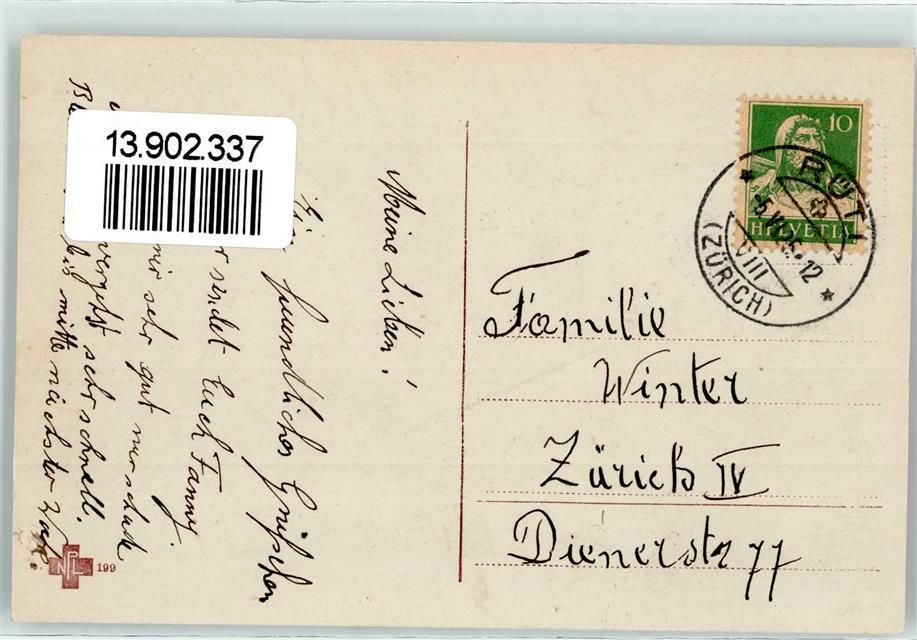 13.902.337
Meine Lieben!
Ein freundliches Grüsschen
sendet Euch Fanny.
mir sehr gut nur schade
vergeht sehr schnell.
bis mitte nächster Woche.
10
HELVETIA
RÜTI
VIII
(ZÜRICH)
Familie
Winter
Zürich IV
Dienerstr 77
NPL 199